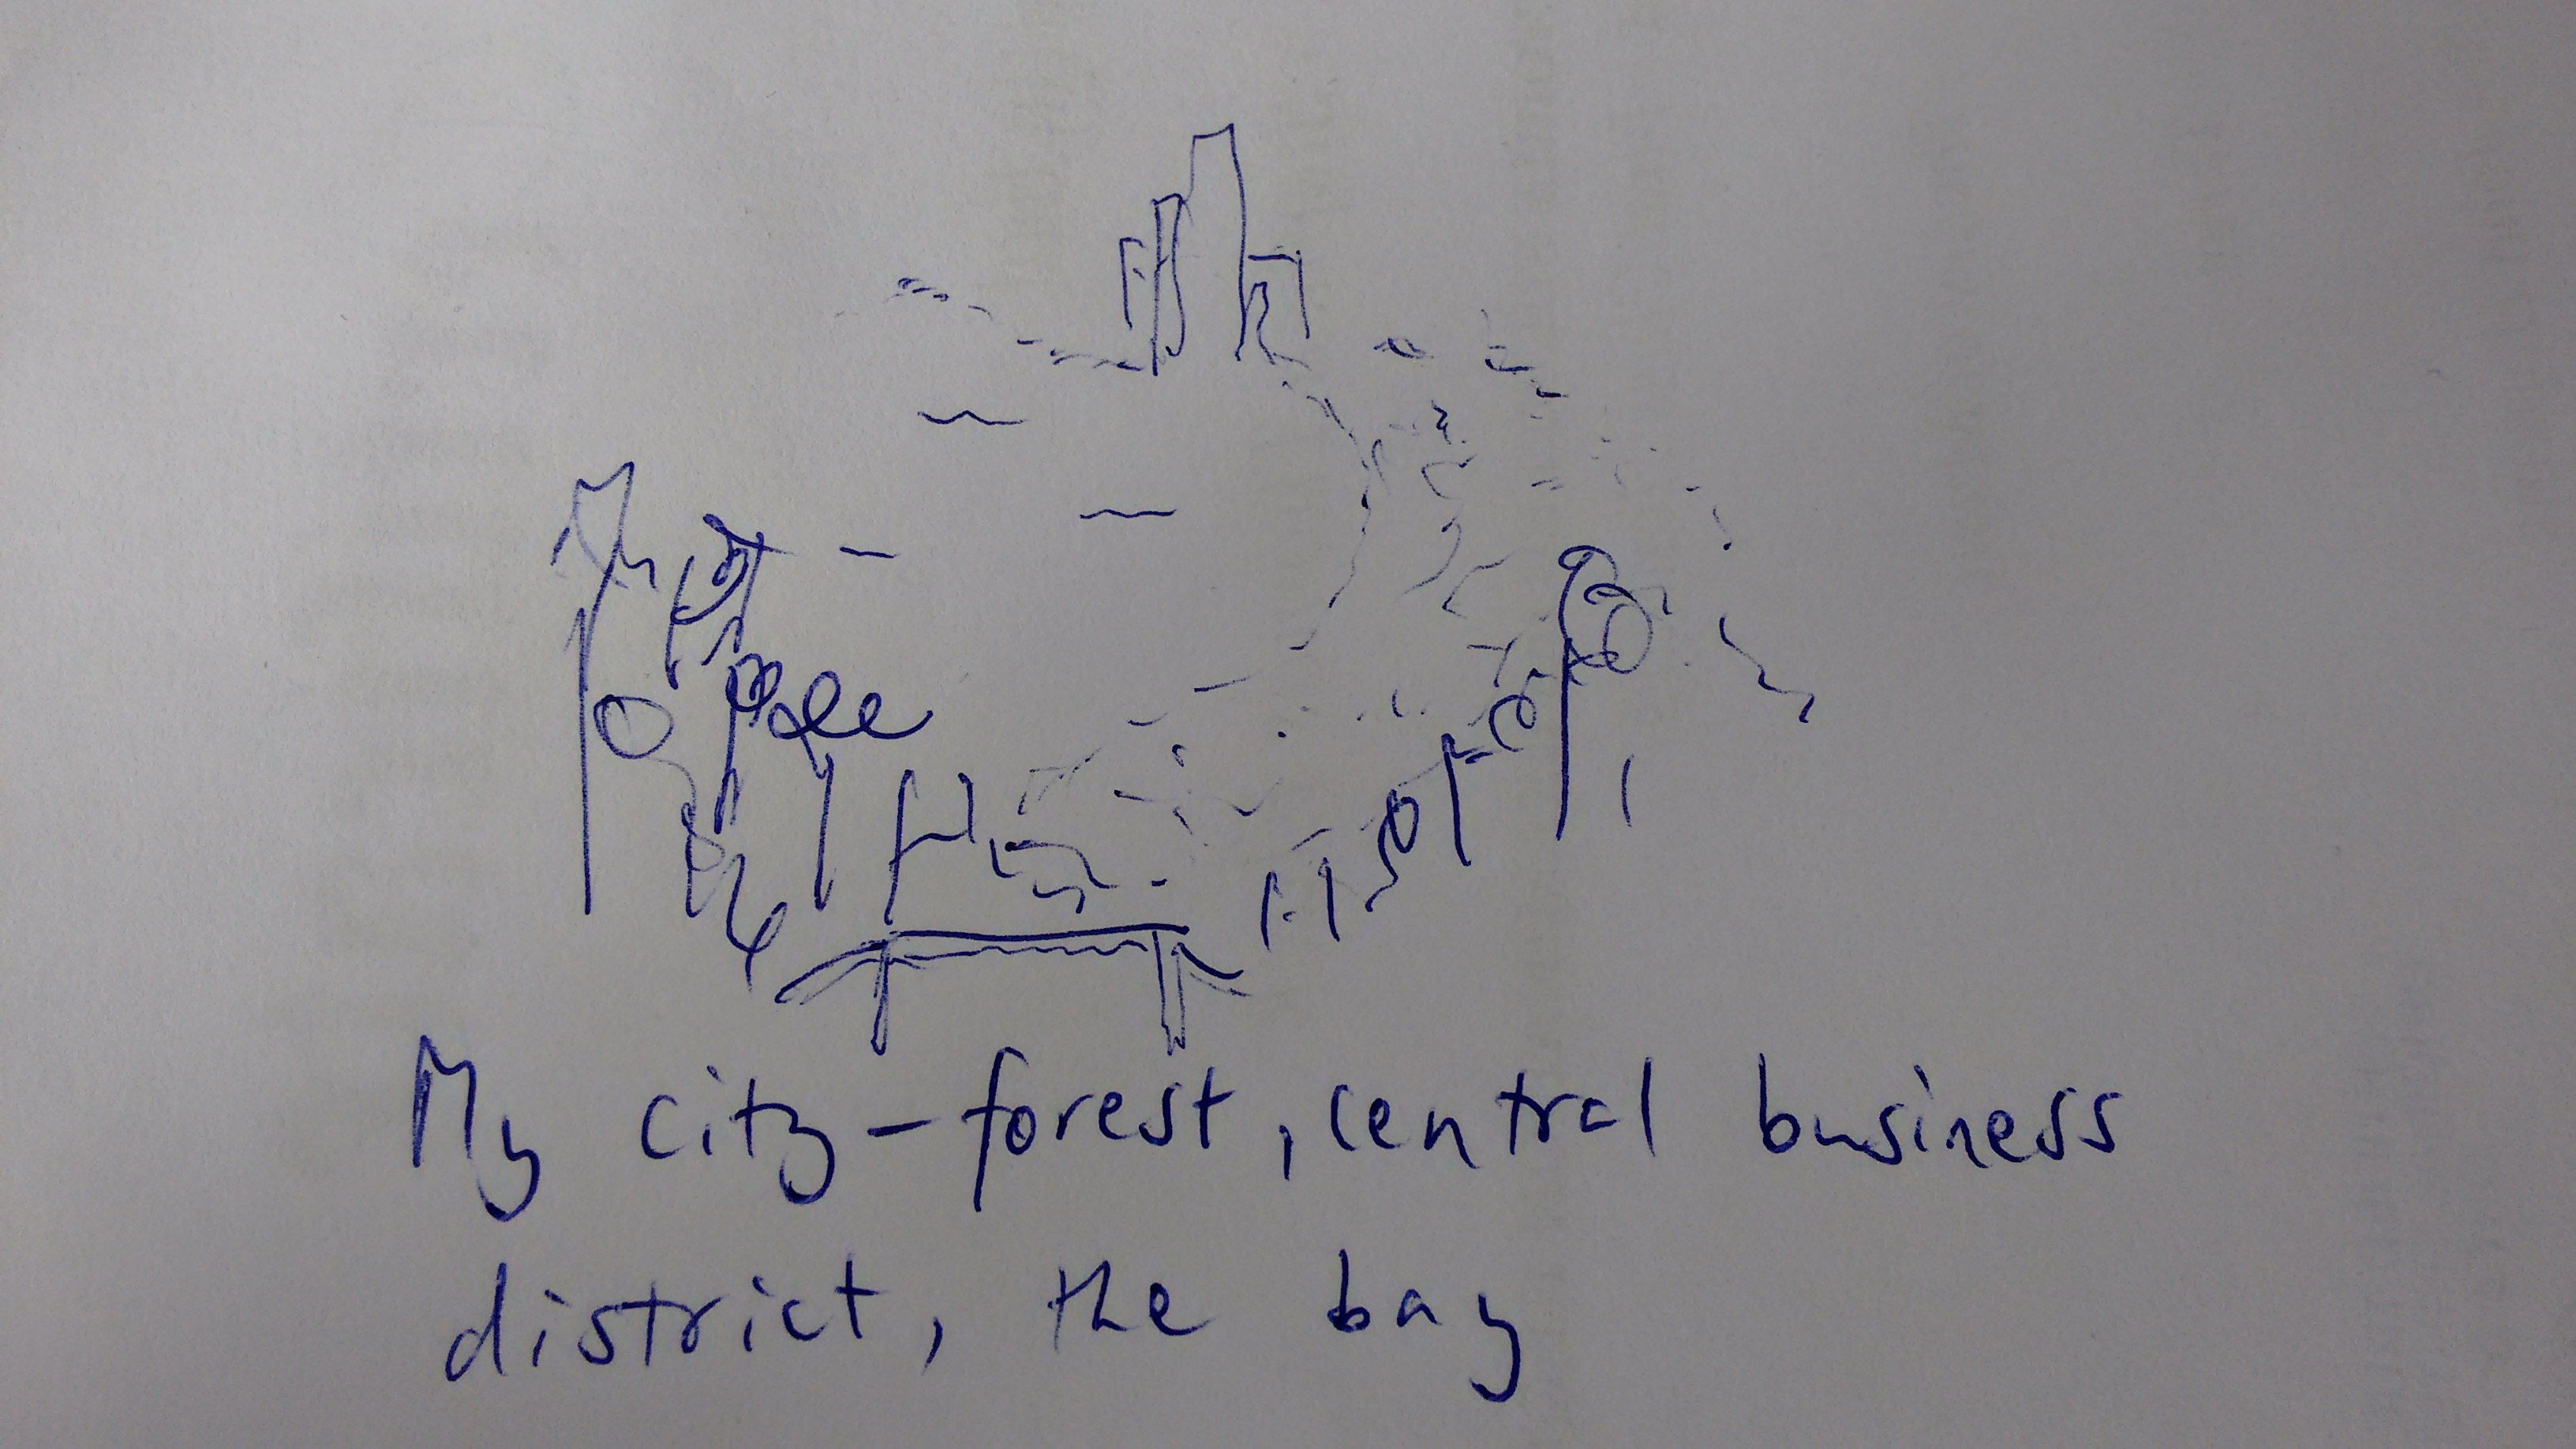 My city-forest, central business
district, the bay